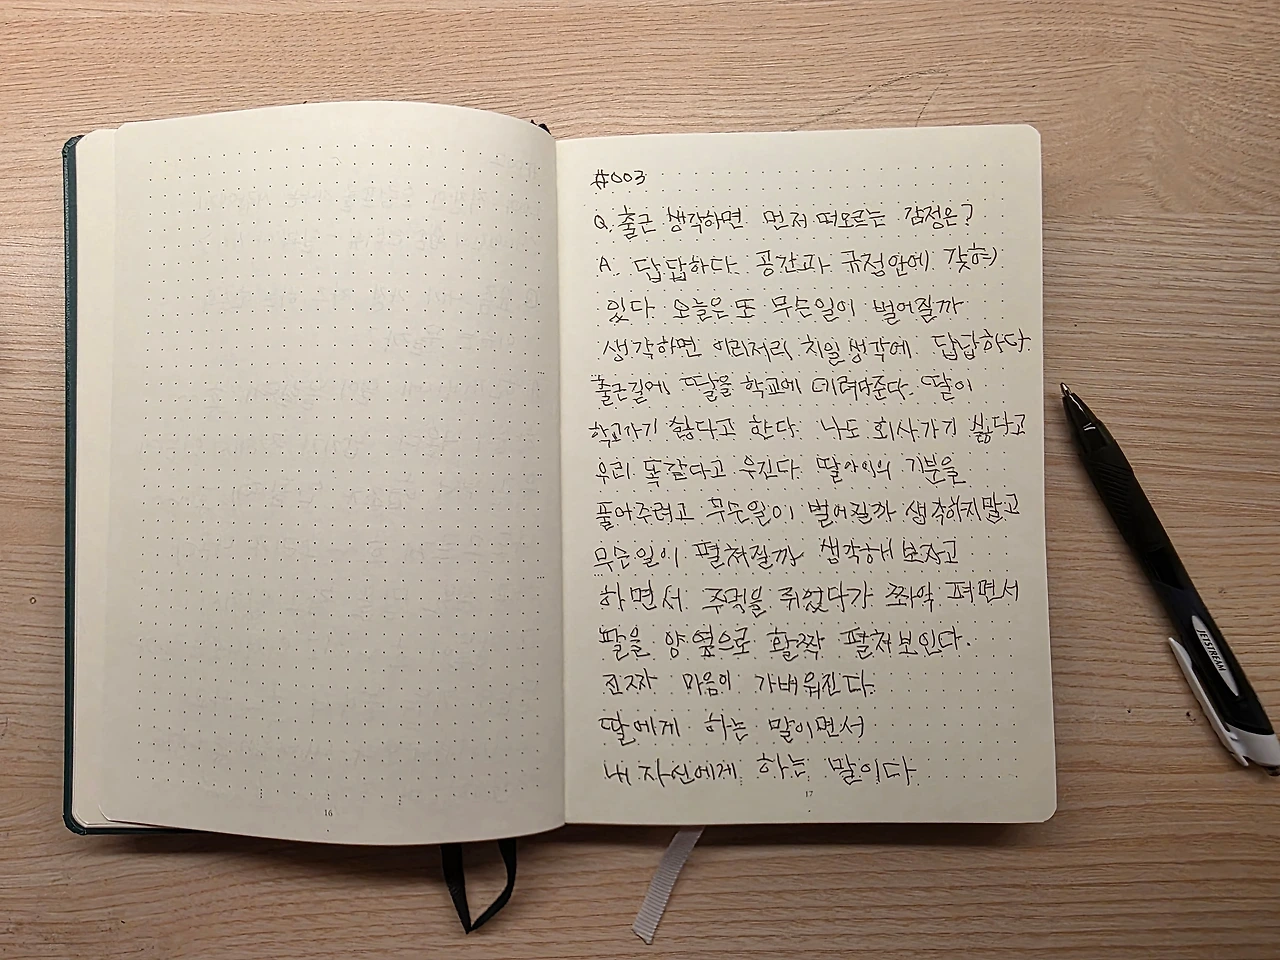 #003
Q. 출근 생각하면 먼저 떠오르는 감정은?
A. 답답하다. 공간과 규정안에 갖혀
있다. 오늘은 또 무슨일이 벌어질까
생각하면 이리저리 치일생각에 답답하다.
출근길에 딸을 학교에 데려다준다. 딸이
학교가기 싫다고 한다. 나도 회사가기 싫다고
우리 똑같다고 웃긴다. 딸아이의 기분을
풀어주려고 무슨일이 벌어질까 생각하지말고
무슨일이 펼쳐질까 생각해보자고
하면서 주먹을 쥐었다가 쫘악 펴면서
팔을 양옆으로 활짝 펼쳐보인다.
진짜 마음이 가벼워진다.
딸에게 하는 말이면서
내 자신에게 하는 말이다
16
17
JETSTREAM